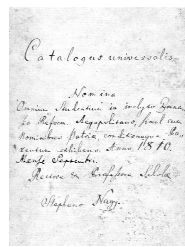 Catalogus universalis
Nomina
Omnium Studentium in inclyto Gymna-
sio Reform. Aegopolitano, simul cum
Nominibus Patriae, conditioneque Pa-
rentum exhibens. Anno 1810.
Mense Septembri.
Rectore & Professore Scholae
Stephano Nagy.